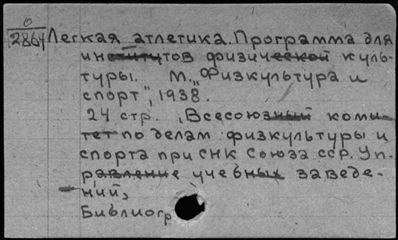 0
12864 Легкая атлетика. Программа для
институтов физической куль-
туры. М., "Физкультура и
спорт", 1938.
24 стр. (Всесоюзный коми-
тет по делам физкультуры и
спорта при СНК Союза ССР. Уп-
равление учебных заведе-
ний)
Библиогр